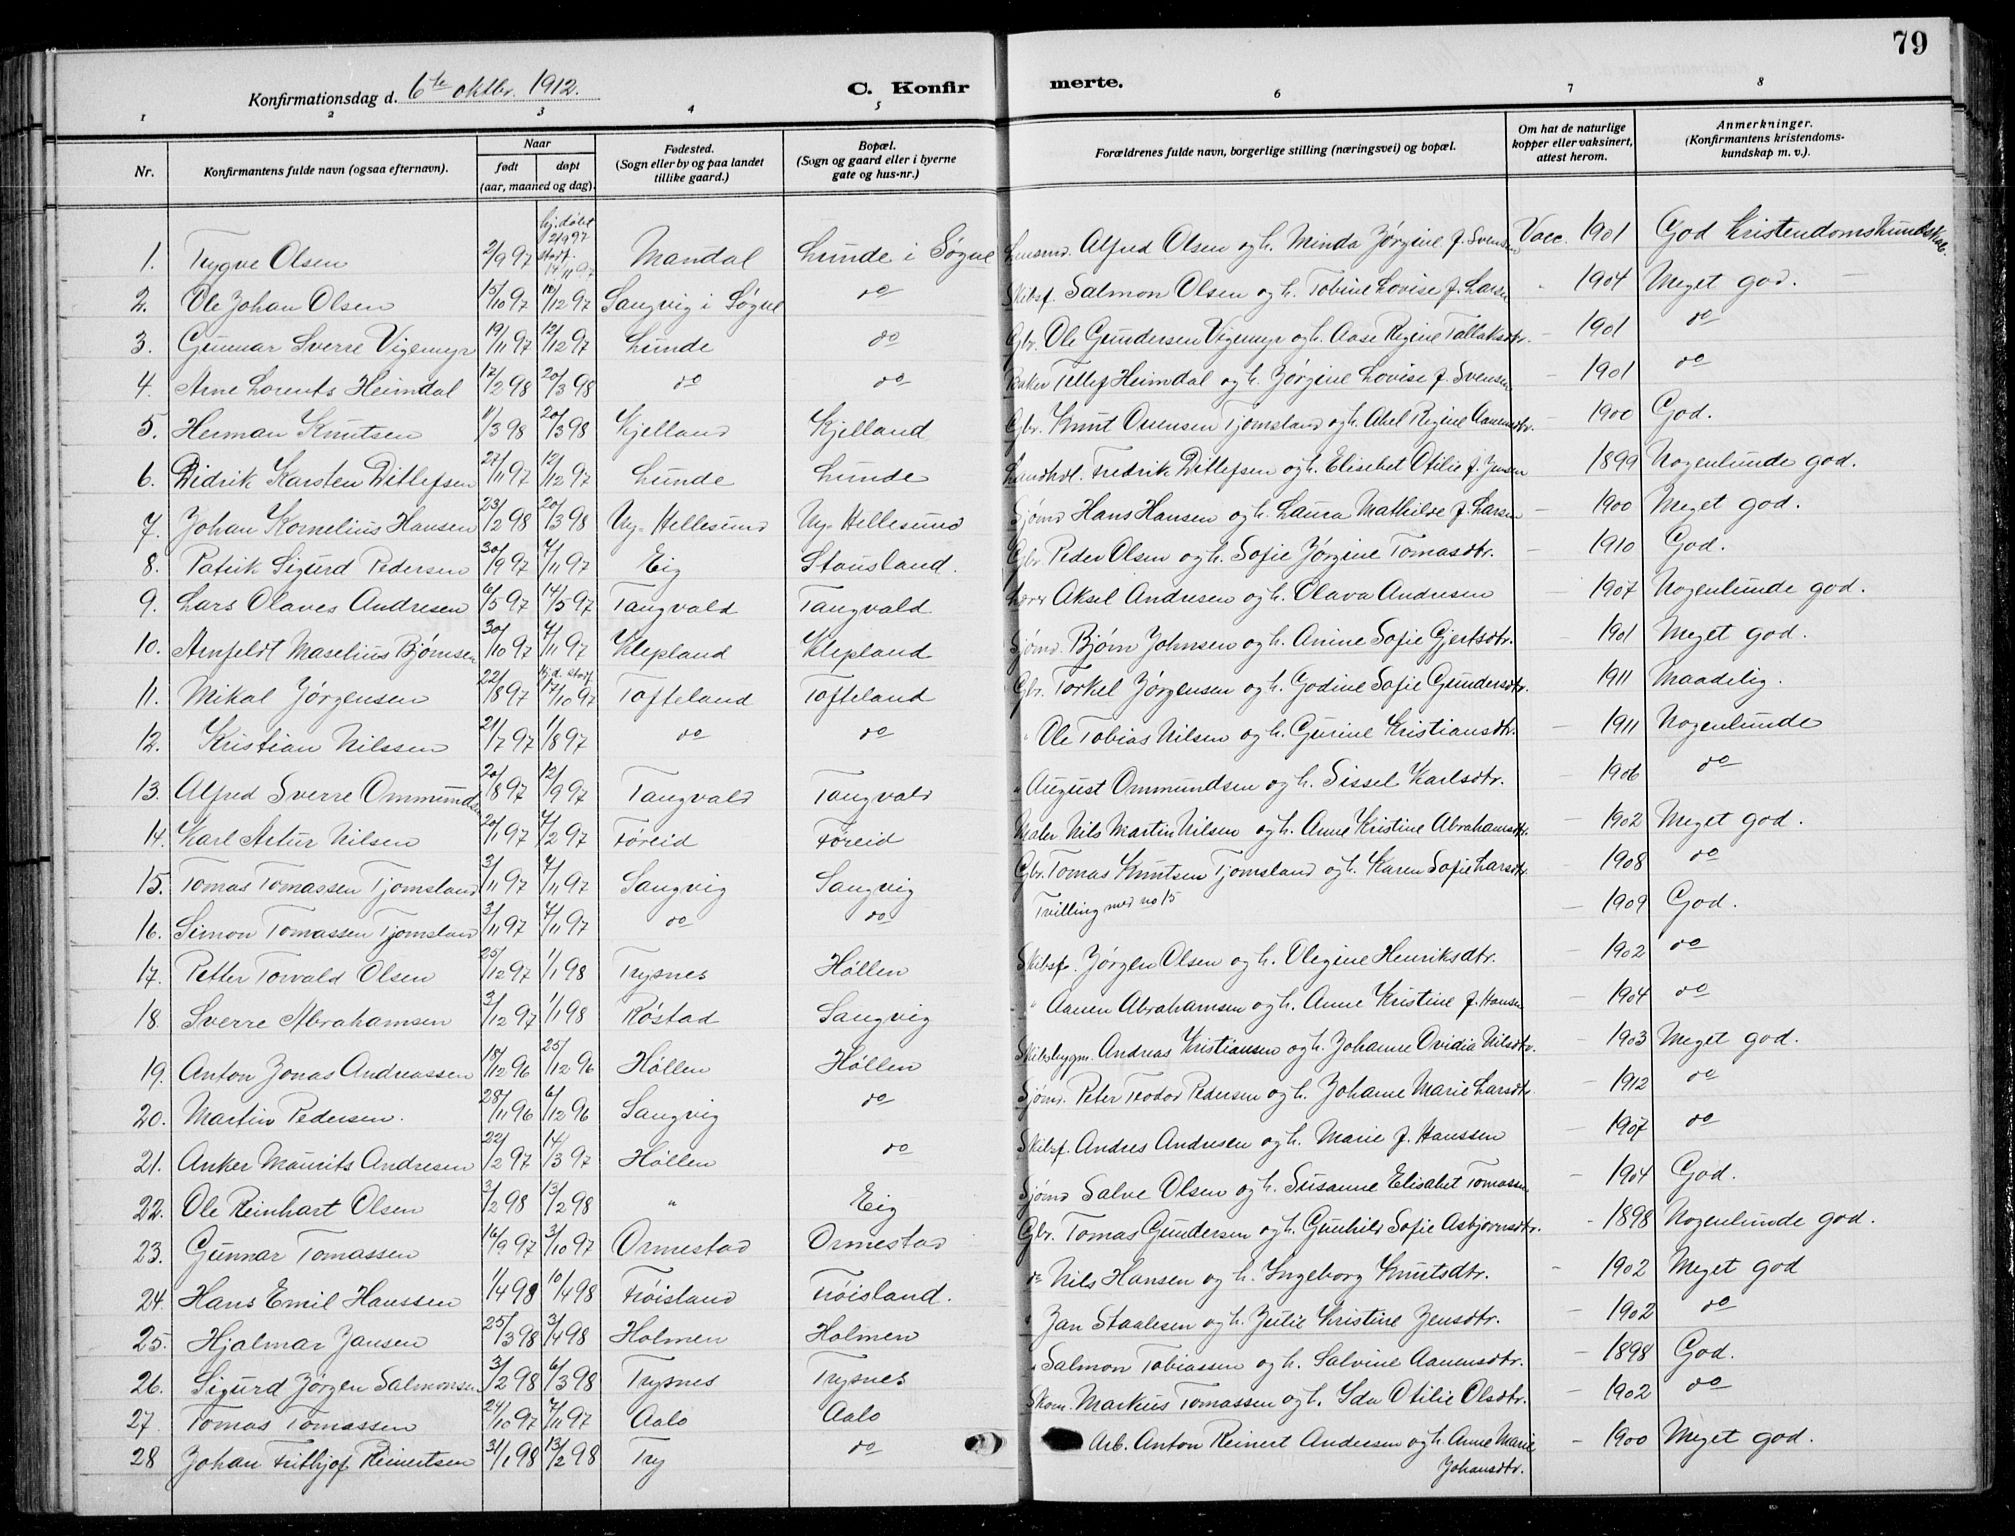 79
Konfirmationsdag d. 6te oktbr. 1912. C. Konfirmerte.
1 2 3 4 5 6 7 8
Nr. Konfirmantens fulde navn (ogsaa efternavn). Naar født døpt (aar, maaned og dag). Fødested. (Sogn eller by og paa landet tillike gaard.) Bopæl. (Sogn og gaard eller i byerne gate og hus-nr.) Forældrenes fulde navn, borgerlige stilling (næringsvei) og bopæl. Om hat de naturlige kopper eller vaksinert, attest herom. Anmerkninger. (Konfirmantens kristendomskundskap m. v.).
1. Trygve Olsen 2/9 97 hj.døbt 2/9 97 stadf. 14/11 97 Mandal Lunde i Søgne Lensmd. Alfred Olsen og h. Minda Jørgine f. Svensen Vacc. 1901 God Kristendomskundskab.
2. Ole Johan Olsen 15/10 97 12/12 97 Langvig i Søgne do Skibsf. Salmon Olsen og h. Tobine Lovise f. Larsen " 1904 Meget god. —
3. Gunnar Sverre Vigemyr 19/11 97 12/12 97 Lunde do Gbr. Ole Gundersen Vigemyr og h. Aase Regine Tallaksdtr. — 1901 do
4. Arne Lorents Heimdal 17/2 98 20/3 98 do do Tellef Heimdal og h. Jørgine Lovise f. Svensen — 1901 do
5. Herman Knutsen 11/3 98 20/3 98 Kjelland Kjelland Gbr. Knut Omensen Tjomsland og h. Abel Regine Aanensdtr. — 1900 God.
6. Didrik Karsten Ditlefsen 27/11 97 12/12 97 Lunde Lunde Landhdl. Fredrik Ditlefsen og h. Elisebet Otilie f. Jensen 1899 Nogenlunde god.
7. Johan Kornelius Hansen 23/2 98 20/3 98 Ny-Hellesund Ny-Hellesund Sjømd Hans Hansen og h. Laura Mathilde f. Larsen — 1900 Meget god.
8. Patrik Sigurd Pedersen 30/9 97 7/11 97 Eig Stausland. Gbr Peder Olsen og h. Sofie Jørgine Tomasdtr. — 1910 God.
9. Lars Olaves Andresen 6/5 97 14/5 97 Tangvald Tangvald Lærer Aksel Andresen og h. Olava Andresen 1907 Nogenlunde god.
10. Arnfeldt Maselius Bjørnsen 30/10 97 7/11 97 Klepland Klepland Sjømd. Bjørn Johnsen og h. Anine Sofie Gjertsdtr. 1901 Meget god.
11. Mikal Jørgensen 22/8 97 hjd. stadf 17/10 97 Tofteland Tofteland Gbr. Torkel Jørgensen og h. Godine Sofie Gundersdtr. 1911 Maadelig.
12. Kristian Nilssen 21/7 97 1/8 97 do do " Ole Tobias Nilsen og h. Gurine Kristiansdtr. — 1911 Nogenlunde
13. Alfred Sverre Ommundsen 20/8 97 12/9 97 Tangvald Tangvald " August Ommundsen og h. Sissel Karlsdtr. — 1906 do
14. Karl Artur Nilsen 20/1 97 7/2 97 Føreid Føreid Maler Nils Martin Nilsen og h. Anne Kristine Abrahamsdtr. — 1902 Meget god.
15. Tomas Tomassen Tjomsland 3/11 97 7/11 97 Langvig Langvig Gbr. Tomas Knutsen Tjomsland og h. Karen Sofie Larsdtr. 1908 do
16. Simon Tomassen Tjomsland 3/11 97 7/11 97 do do Tvilling med no 15 — 1909 God.
17. Petter Torvald Olsen 25/12 97 1/1 98 Trysnes Høllen Skibsfr. Jørgen Olsen og h. Olegine Henriksdtr. — 1902 do
18. Sverre Abrahamsen 3/12 97 1/1 98 Røstad Langvig " Aanen Abrahamsen og h. Anne Kristine f. Hansen — 1904 do
19. Anton Jonas Andreassen 18/12 96 25/12 96 Høllen Høllen Skibsbygm. Andreas Kristiansen og h. Johanne Ovidia Nilsdtr. — 1903 Meget god.
20. Martin Pedersen. 28/11 96 6/12 96 Langvig do Sjømd. Peter Teodor Pedersen og h. Johanne Marie Larsdtr. 1912 do
21. Anker Maurits Andresen 22/2 97 14/3 97 Høllen do Skibsf. Andres Andresen og h. Marie f. Hanssen — 1907 do
22. Ole Reinhart Olsen 3/2 98 13/2 98 " Eig Sjømd Salve Olsen og h. Susanne Elisabet Tomassen — 1904 God.
23. Gunnar Tomassen 16/9 97 3/10 97 Ormestad Ormestad Gbr. Tomas Gundersen og h. Gunhild Sofie Asbjørnsdtr. - 1898 Nogenlunde god.
24. Hans Emil Hanssen 1/4 98 10/4 98 Frøisland Frøisland. do Nils Hansen og h. Ingeborg Knutsdtr. - 1902 Meget god
25. Hjalmar Jansen 25/3 98 3/4 98 Holmen Holmen " Jan Staalesen og h. Julie Kristine Jensdtr. — 1902 do
26. Sigurd Jørgen Salmonsen 3/2 98 6/3 98 Trysnes Trysnes " Salmon Tobiassen og h. Salvine Aanensdtr. — 1898 God.
27. Tomas Tomassen 24/10 97 7/11 97 Aalo Aalo Skom. Markus Tomassen og h. Ida Otilie Olsdtr. — 1902 do
28 Johan Fritjof Reinertsen 31/1 98 13/2 98 Try do Arb. Anton Reinert Andersen og h. Anne Marie Johansdtr. — 1900 Meget god.